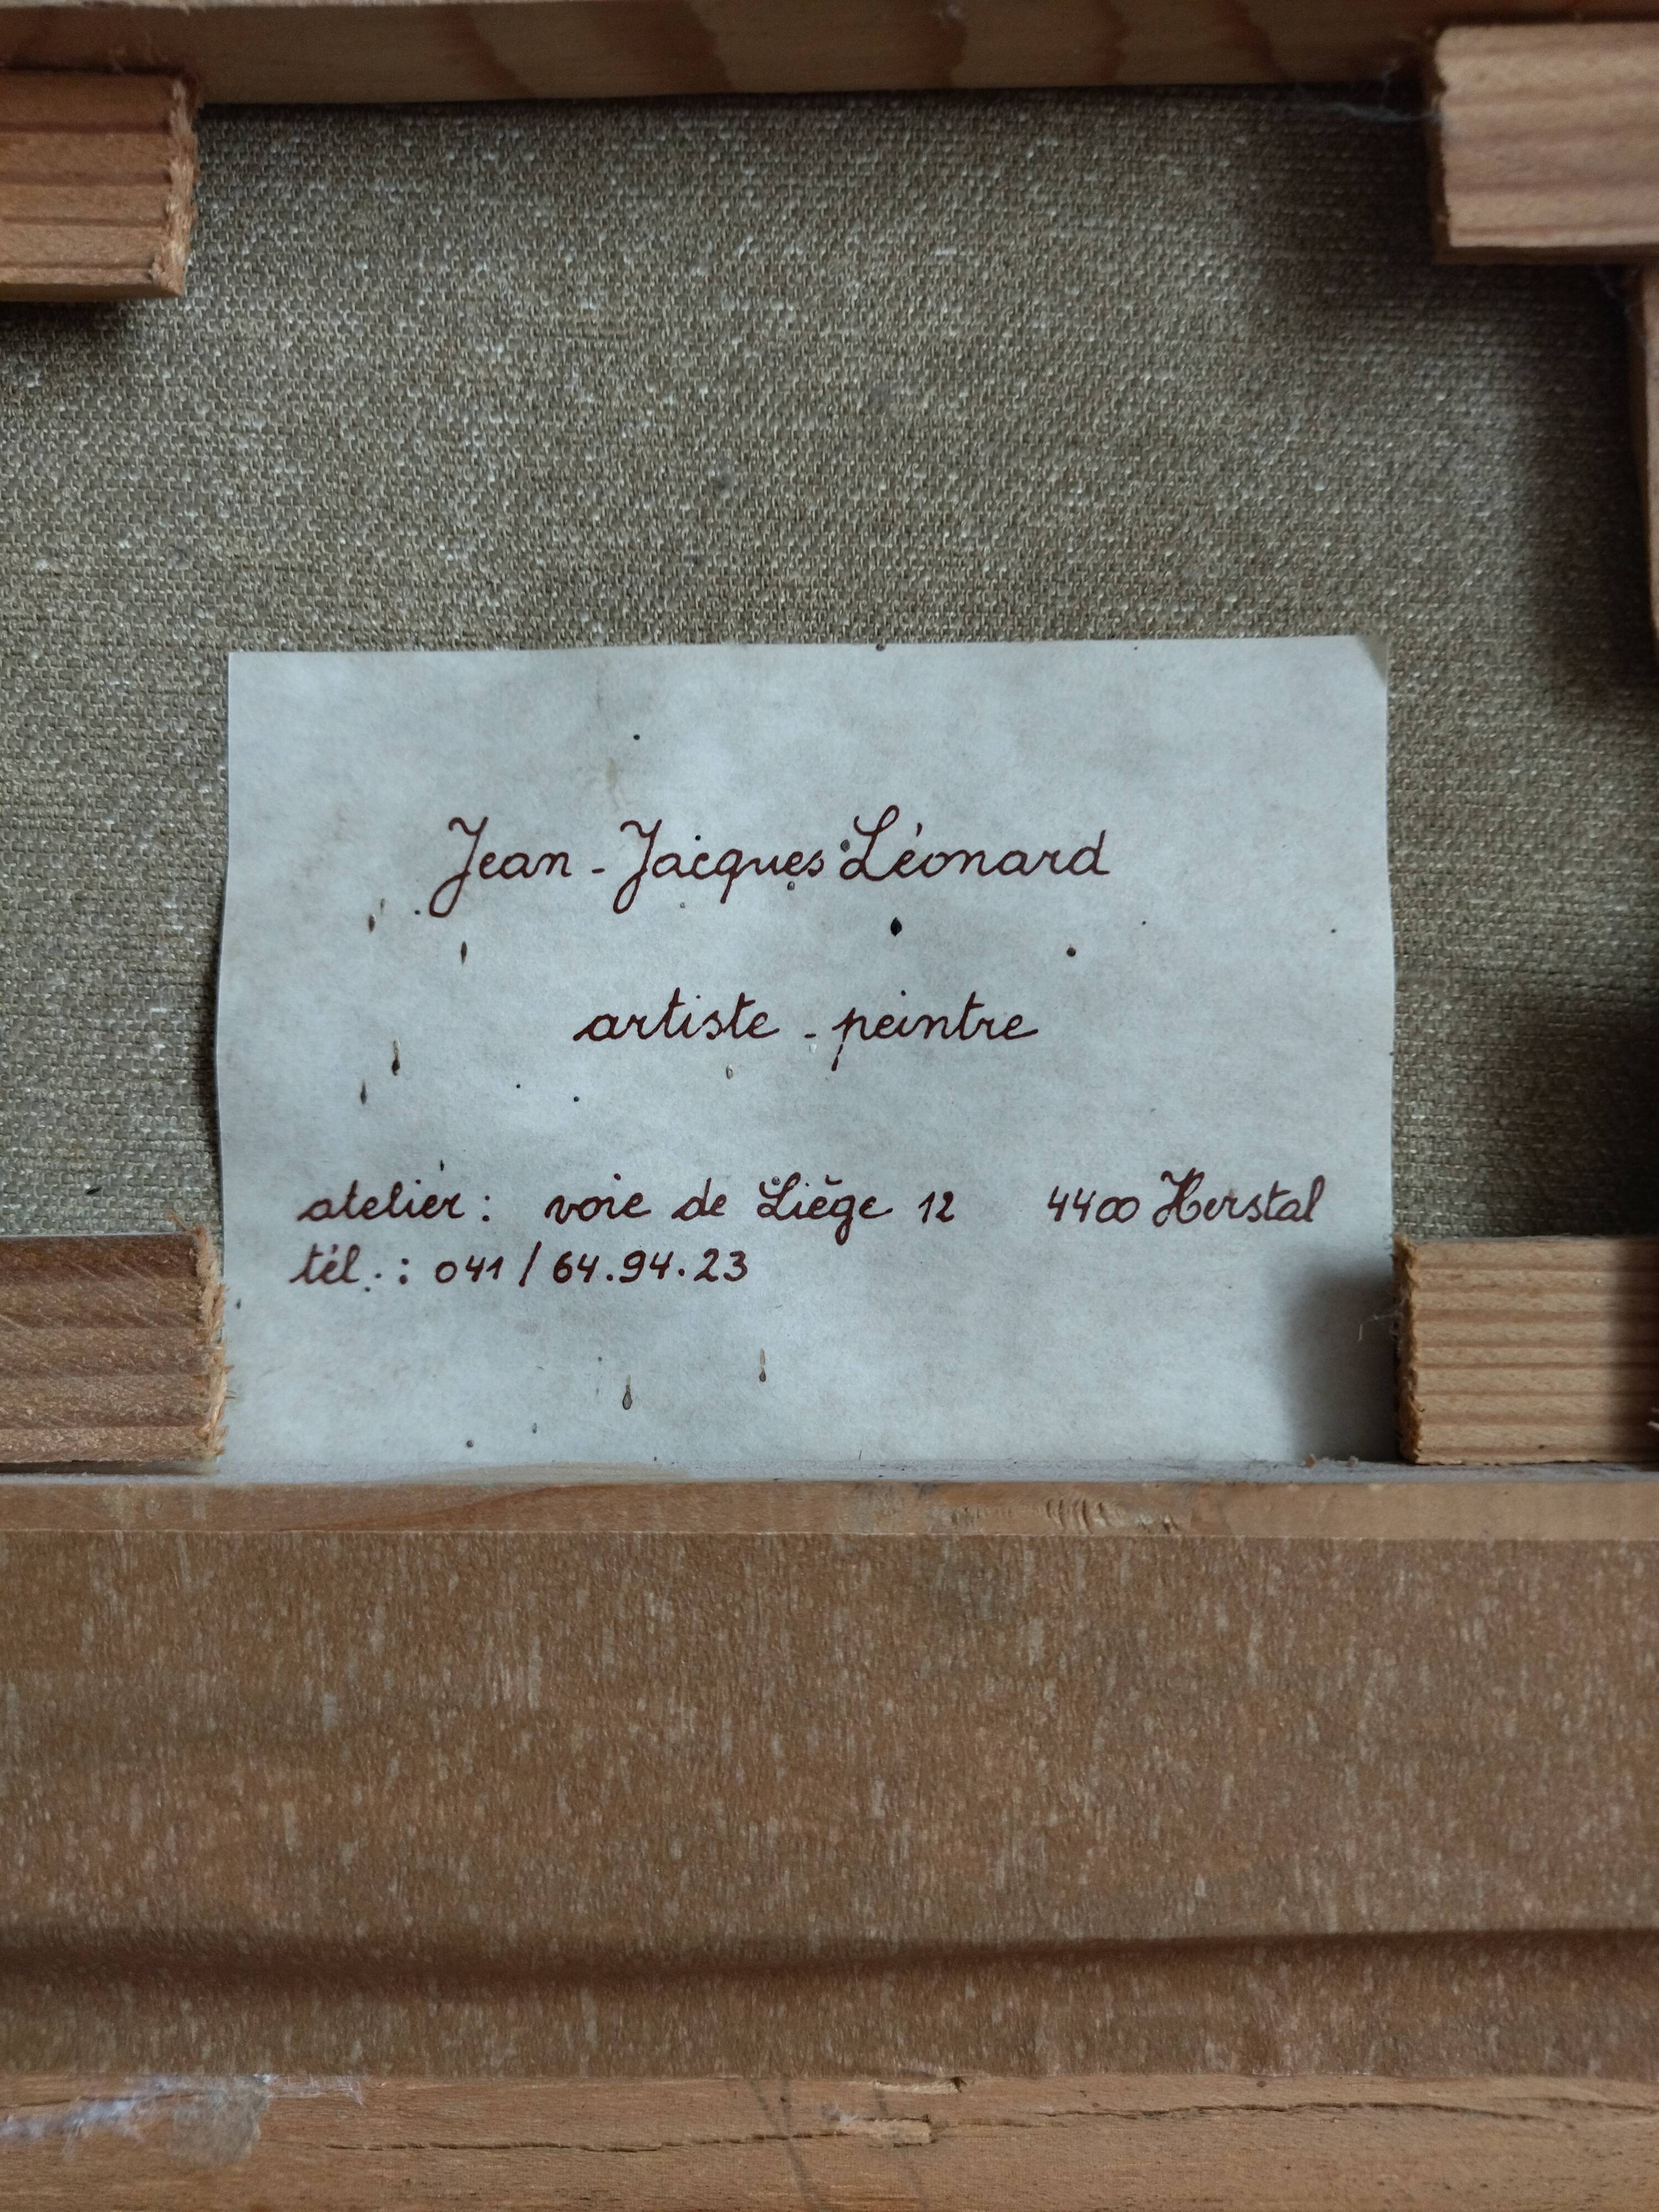 Jean-Jacques Léonard
artiste-peintre
atelier : voie de Liège 12 4400 Herstal
tél. : 041 / 64.94.23